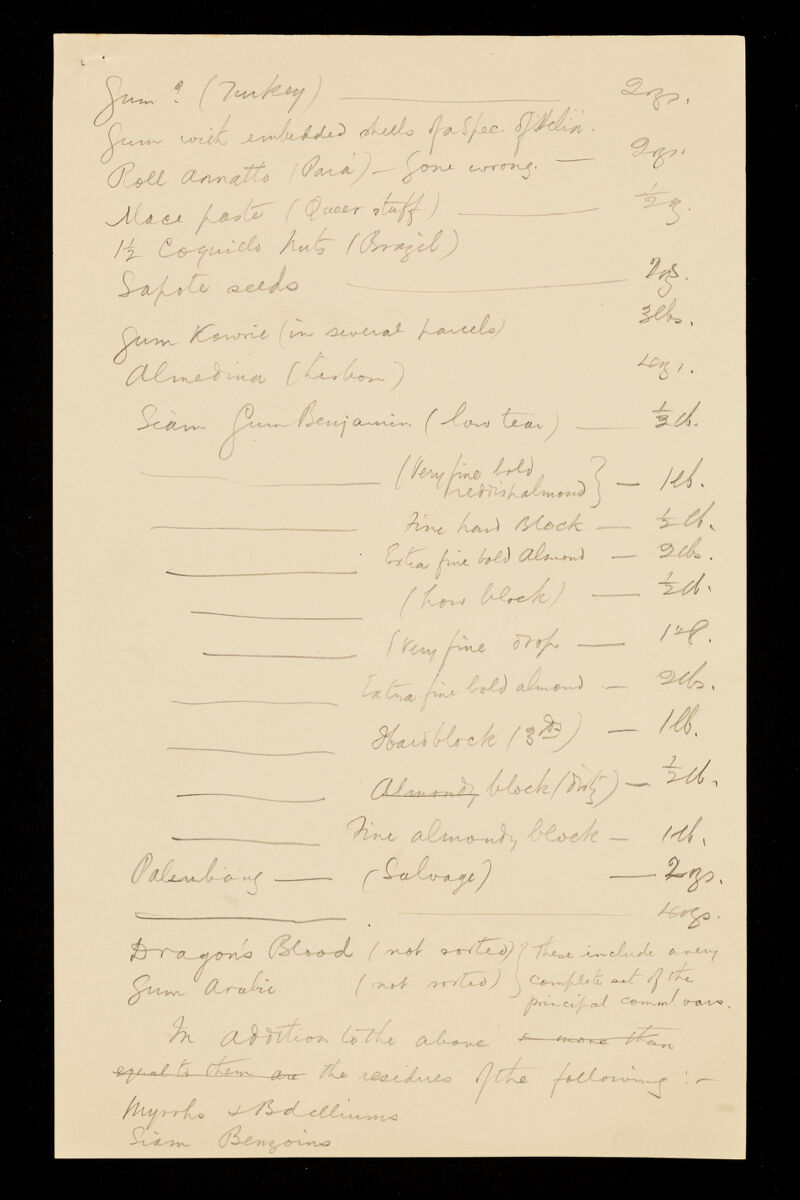 Gum? (Turkey) 2 ozs.
Gum with embedded shells of a Spec. of Helix.
Roll Annatto (Pará) - Gone wrong. — 2 ozs.
Mace paste (Queer stuff) — ½ oz.
1½ Coquillo Nuts (Brazil)
Sapote seeds — 2 ozs.
Gum Kowrie (in several parcels) 3 lbs.
Almedina (Lisbon) 4 ozs.
Siam Gum Benjamin (low tear) — lb.
— (Very fine bold
reddish almond) } — 1 lb.
— Fine hard Block — ½ lb.
— Extra fine bold Almond — 2 lbs.
— (Low block) — ½ lb.
— (Very fine drop — 1 lb.
— Extra fine bold almond — 2 lbs.
— Hard block (3rds) — 1 lb.
— Almondy block (dirty) — ½ lb.
— Fine almondy block — 1 lb.
Palembang — (Salvage) — 2 ozs.
— 4 ozs.
Dragon's Blood (not sorted) } These include a very
Gum Arabic (not sorted) } complete set of the
principal comml vars.
In addition to the above & more than
equal to them are the residues of the following :-
Myrrhs & Bdelliums
Siam Benzoins